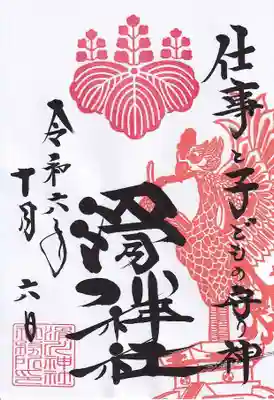 仕事と子どもの守り神
滑川神社
令和六年
十月六日